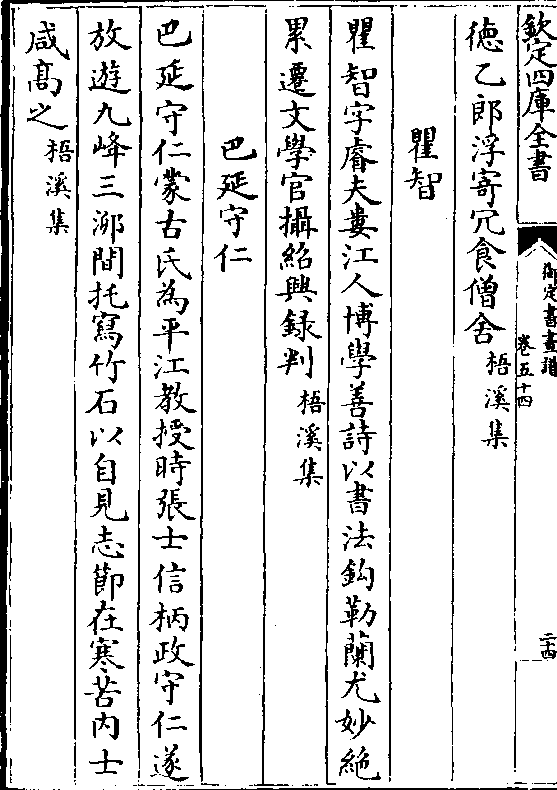 欽定四庫全書
御定書畫譜
卷五十四
二十四
徳乙郎浮寄冗食僧舍梧溪集
瞿智
瞿智字睿夫婁江人博學善詩以書法鈎勒蘭尤妙絶
累遷文學官攝紹興録判梧溪集
巴延守仁
巴延守仁蒙古氏為平江教授時張士信柄政守仁遂
放遊九峰三泖間托寫竹石以自見志節在寒苦内士
咸髙之梧溪集